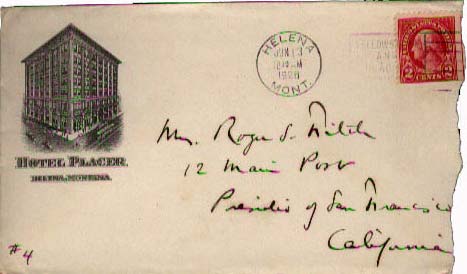 HELENA
JUN 13
M
1926
MONT.
2 CENTS 2
HOTEL PLACER
HELENA, MONTANA.
Mrs. Roger S. Fitch
12 Main Post
Presidio of San Francisco
California
#4